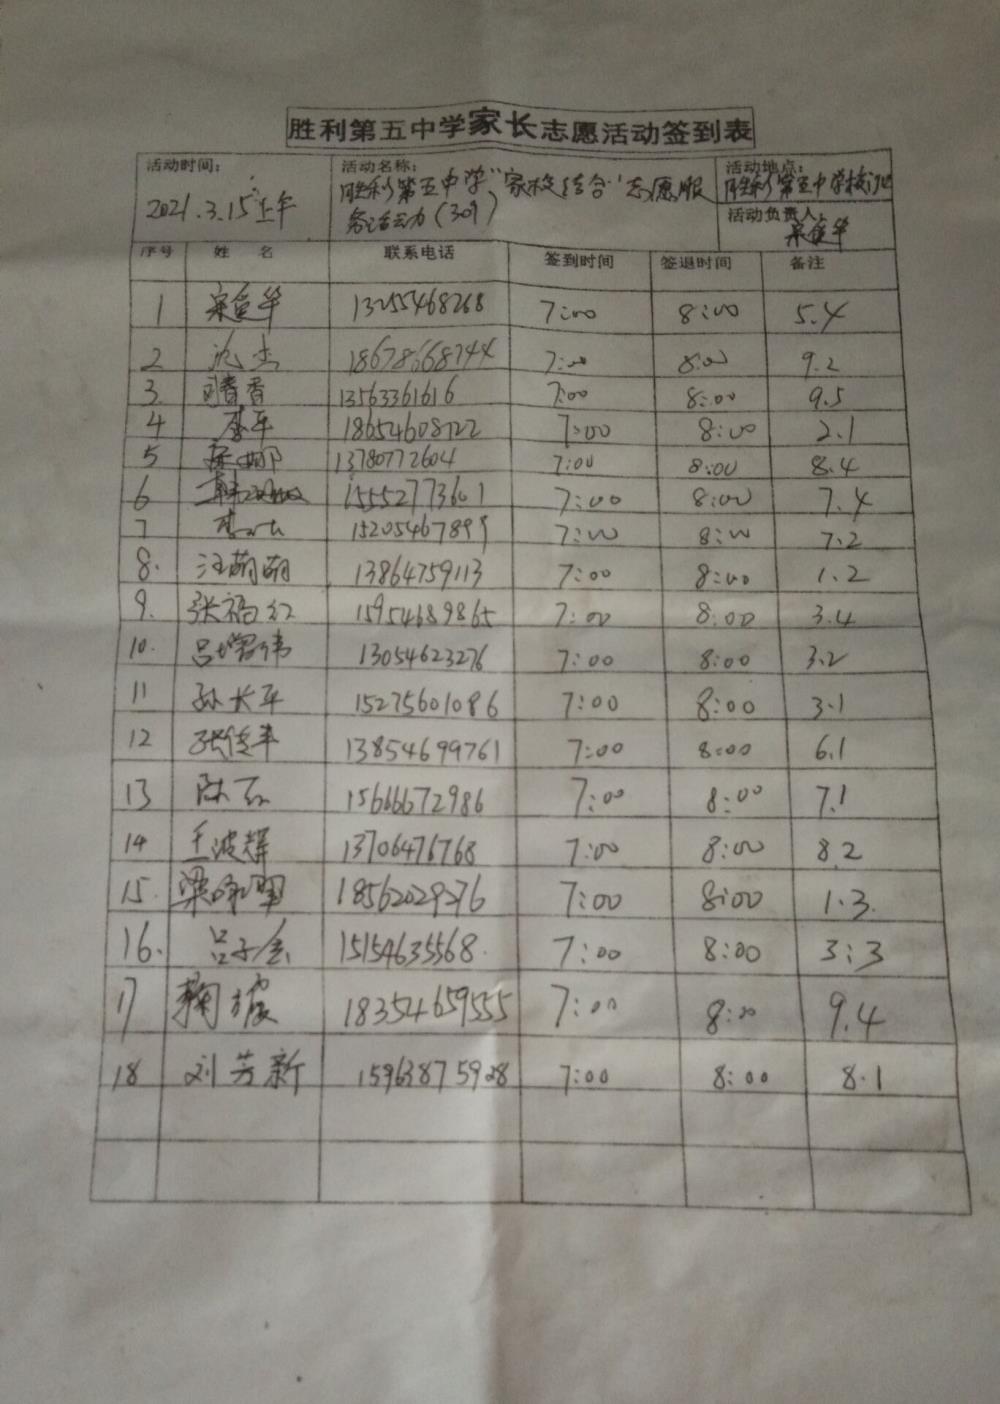 胜利第五中学家长志愿活动签到表
活动时间： 活动名称： 活动地点：
2021.3.15上午 胜利第五中学“家校结合”志愿服 胜利第五中学校门口
务活动(309) 活动负责人：
序号 姓 名 联系电话 签到时间 签退时间 备注
1 13255468268 7:00 8:00 5.4
2 沈杰 18678668744 7:00 8:00 9.2
3. 春香 13563361616 7:00 8:00 9.5
4 李平 18654608722 7:00 8:00 2.1
5 娜 13780772604 7:00 8:00 8.4
6 15552773601 7:00 8:00 7.4
7 15205467899 7:00 8:00 7.2
8. 汪萌萌 13864759113 7:00 8:00 1.2
9. 张福红 15954689865 7:00 8:00 3.4
10. 吕增伟 13054623276 7:00 8:00 3.2
11 孙长平 15275601086 7:00 8:00 3.1
12 张 13854699761 7:00 8:00 6.1
13 陈 15666672986 7:00 8:00 7.1
14 王波辉 13706476768 7:00 8:00 8.2
15. 梁 18562029276 7:00 8:00 1.3.
16. 吕子 15154635568. 7:00 8:00 3:3
17 鞠 18354659555 7:00 8:00 9.4
18 刘芳新 15963875928 7:00 8:00 8.1